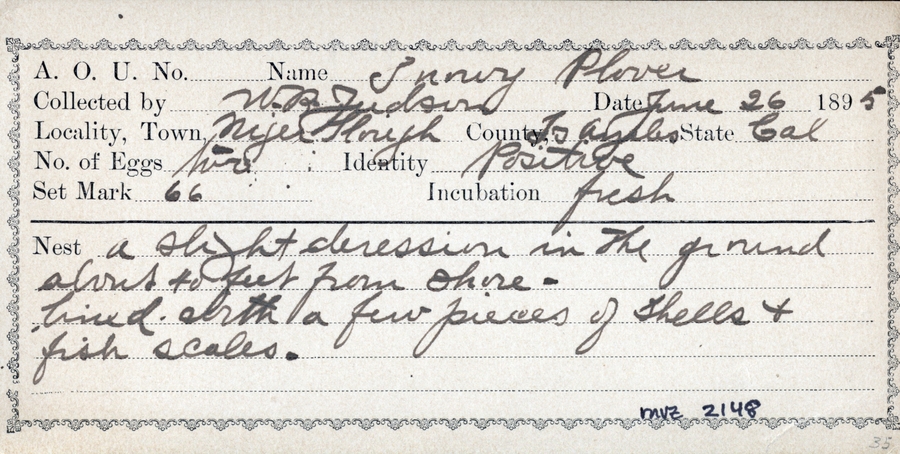 A. O. U. No. Name Snowy Plover
Collected by W.B. Judson Date June 26 1895
Locality, Town, County Los Angeles State Cal
No. of Eggs two Identity Positive
Set Mark 66 Incubation fresh
Nest a slight deression in the ground
about 40 feet from shore -
lined with a few pieces of shells +
fish scales.
mvz 2148
35